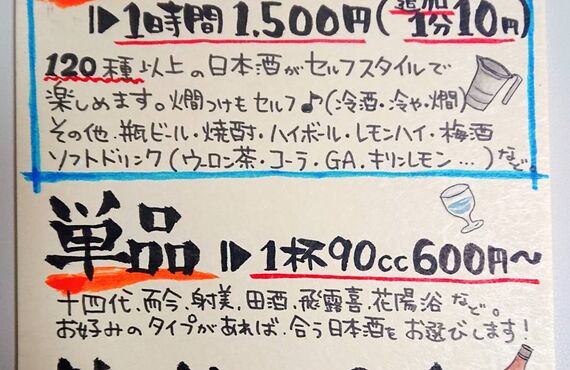 1時間 1,500円(追加1分10円)
120種以上の日本酒がセルフスタイルで
楽しめます。燗つけもセルフ♪(冷酒・冷や・燗)
その他、瓶ビール・焼酎・ハイボール・レモンハイ・梅酒
ソフトドリンク(ウーロン茶・コーラ・GA・キリンレモン…)など。
単品 1杯90cc600円〜
十四代、而今、射美、田酒、飛露喜、花陽浴 など。
お好みのタイプがあれば、合う日本酒をお選びします!